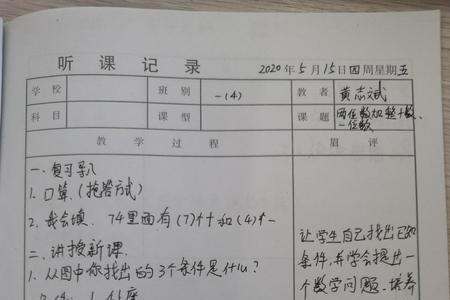 听课记录 2020年5月15日四周星期五
学校 班别 一(4) 教者 黄志斌
科目 课型 课题 两位数加整十数、
一位数
教学过程 眉评
一.复习导入
1. 口算.(抢答方式)
2. 我会填. 74里面有(7)个十和(4)个一
二.讲授新课.
1. 从图中你找出的3个条件是什么?
让学生自己找出已知
条件,并学会提出一
个数学问题.培养